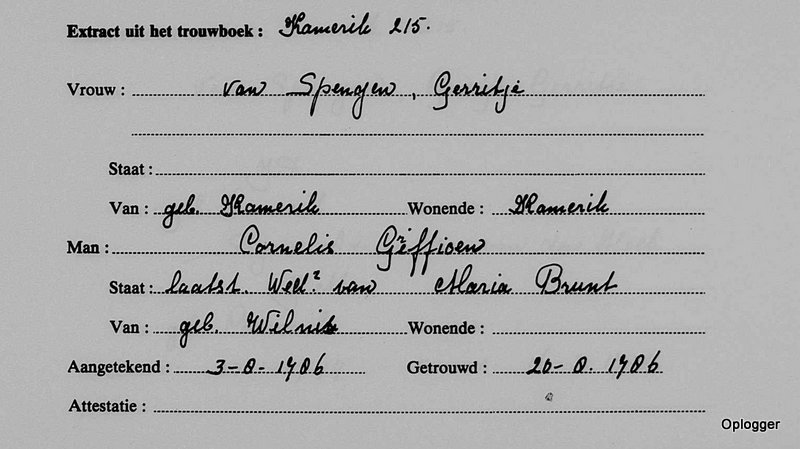 Extract uit het trouwboek : Kamerik 215.
Vrouw : van Spengen, Gerritje
Staat :
Van : geb. Kamerik Wonende : Kamerik
Man : Cornelis Griffioen
Staat : laatst. Wedr van Maria Brunt
Van : geb. Wilnis Wonende :
Aangetekend : 3-8-1786 Getrouwd : 20-8-1786
Attestatie :
Oplogger